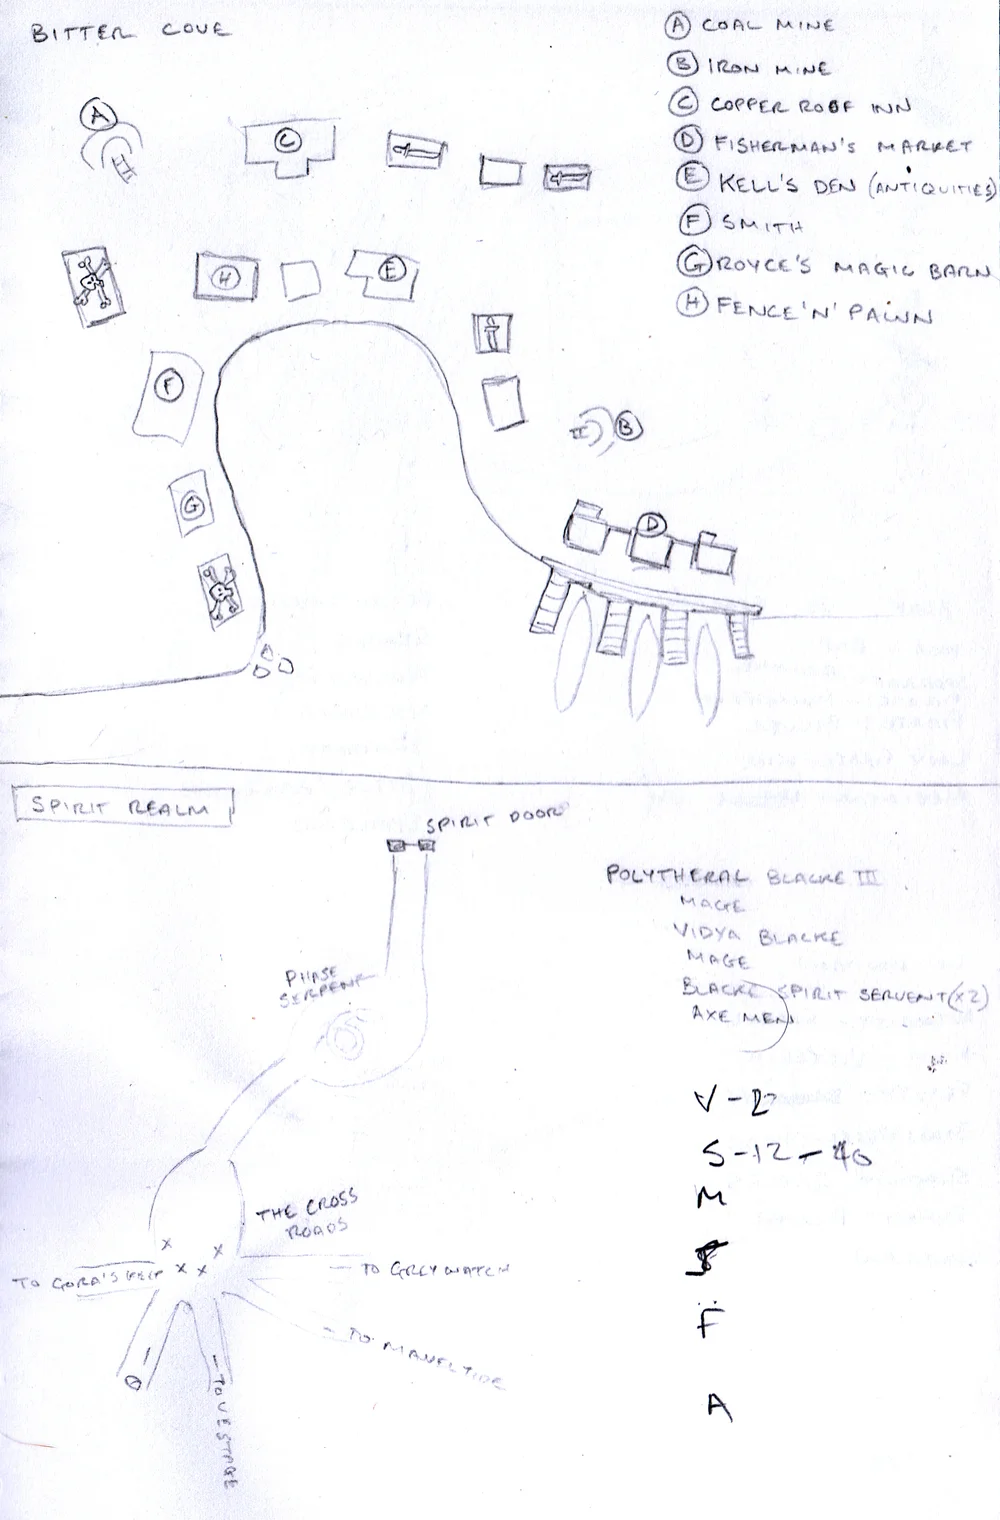 BITTER COVE
Ⓐ COAL MINE
Ⓑ IRON MINE
Ⓒ COPPER ROOF INN
Ⓓ FISHERMAN'S MARKET
Ⓔ KELL'S DEN (ANTIQUITIES)
Ⓕ SMITH
Ⓖ ROYCE'S MAGIC BARN
Ⓗ FENCE 'N' PAWN
A
C
H
E
F
B
G
D
SPIRIT REALM
SPIRIT DOOR
PHASE
SERPENT
THE CROSS
ROADS
TO GORA'S
TO GREYWATCH
TO
TO
POLYTHERAL BLACKE III
MAGE
VIDYA BLACKE
MAGE
BLACKE SPIRIT SERVENT (x2)
AXE MEN
V - 2
S - 12 - 40
M
F
A